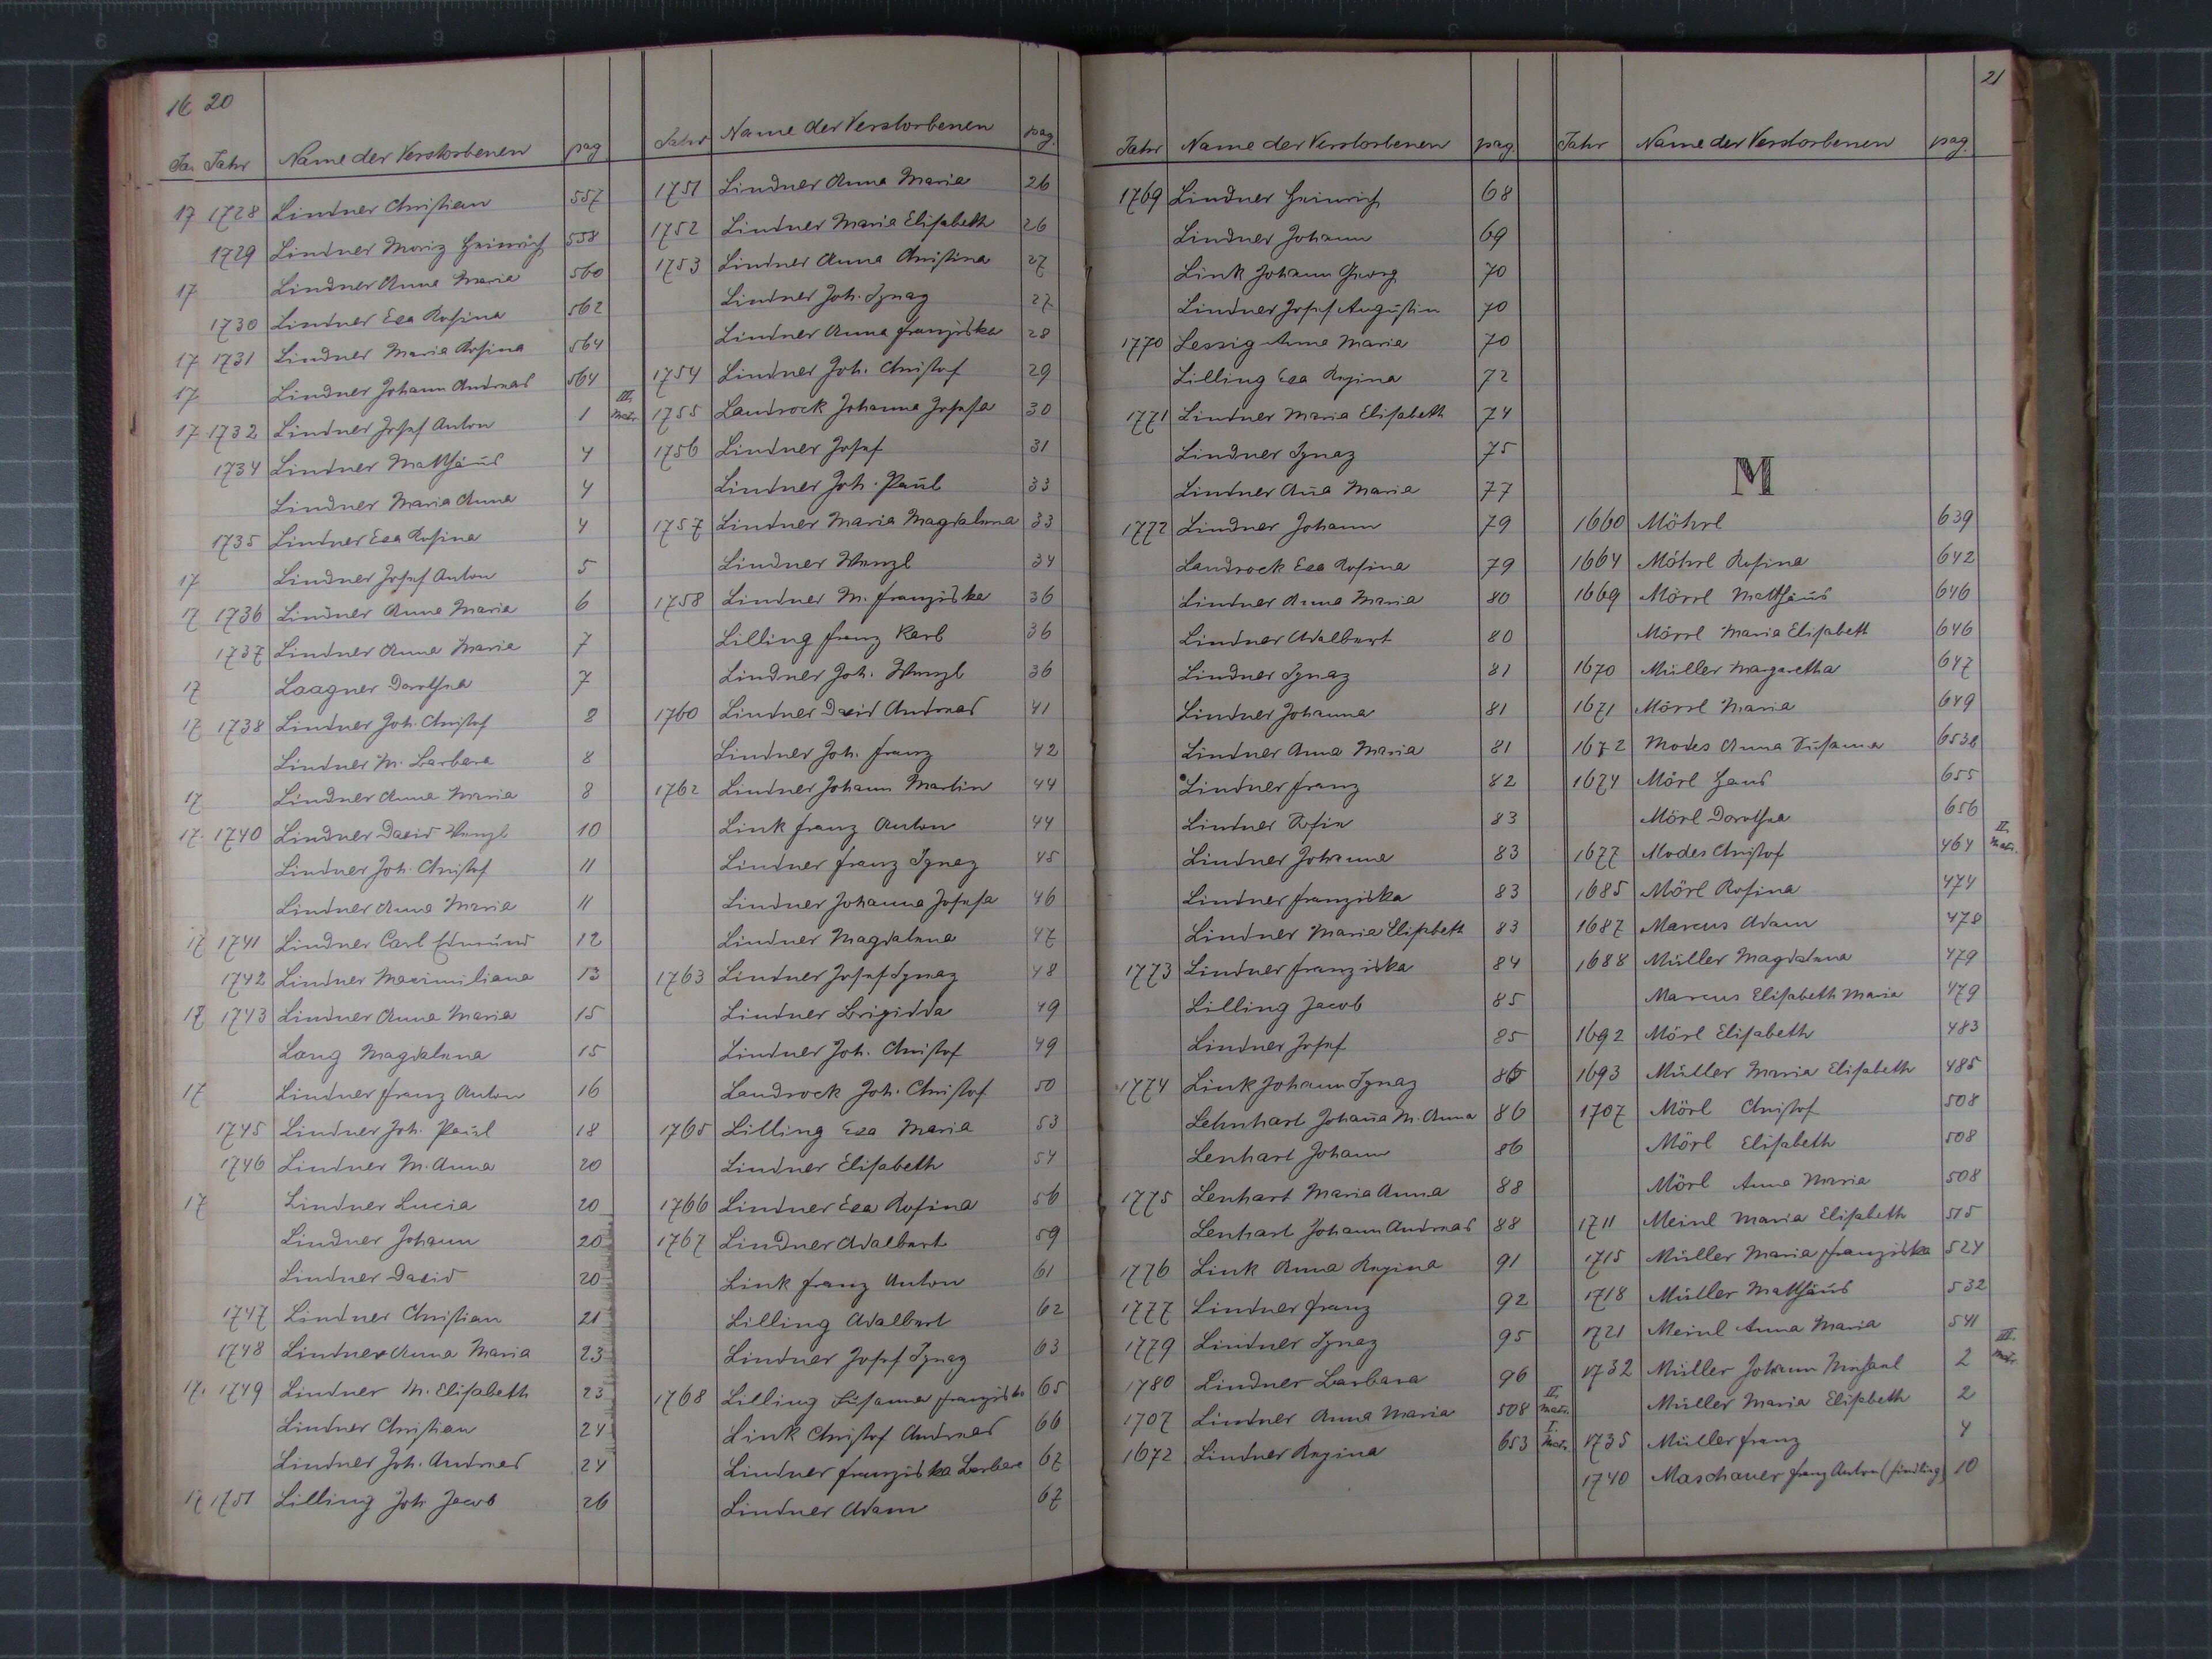 20
Jahr Name der Verstorbenen pag
1728 Lindner Christian 557
1729 Lindner Moriz Heinrich 558
Lindner Anna Maria 560
1730 Lindner Eva Rosina 562
1731 Lindner Maria Rosina 564
Lindner Johann Andreas 564
1732 Lindner Josef Anton 1 III. Matr.
1734 Lindner Matthäus 4
Lindner Maria Anna 4
1735 Lindner Eva Rosina 4
Lindner Josef Anton 5
1736 Lindner Anna Maria 6
1737 Lindner Anna Maria 7
Laagner Dorothea 7
1738 Lindner Joh. Christof 8
Lindner M. Barbara 8
Lindner Anna Maria 8
1740 Lindner David Wenzl 10
Lindner Joh. Christof 11
Lindner Anna Maria 11
1741 Lindner Carl Edmund 12
1742 Lindner Maximiliana 13
1743 Lindner Anna Maria 15
Lang Magdalena 15
Lindner Franz Anton 16
1745 Lindner Joh. Paul 18
1746 Lindner M. Anna 20
Lindner Lucia 20
Lindner Johann 20
Lindner David 20
1747 Lindner Christian 21
1748 Lindner Anna Maria 23
1749 Lindner M. Elisabeth 23
Lindner Christian 24
Lindner Joh. Andreas 24
1751 Lilling Joh Jacob 26
Jahr Name der Verstorbenen pag.
1751 Lindner Anna Maria 26
1752 Lindner Maria Elisabeth 26
1753 Lindner Anna Christina 27
Lindner Joh. Ignaz 27
Lindner Anna Franziska 28
1754 Lindner Joh. Christof 29
1755 Landrock Johanna Josefa 30
1756 Lindner Josef 31
Lindner Joh. Paul 33
1757 Lindner Maria Magdalena 33
Lindner Wenzl 34
1758 Lindner M. Franziska 36
Lilling Franz Karl 36
Lindner Joh. Wenzl 36
1760 Lindner David Andreas 41
Lindner Joh. Franz 42
1762 Lindner Johann Martin 44
Link Franz Anton 44
Lindner Franz Ignaz 45
Lindner Johanna Josefa 46
Lindner Magdalena 47
1763 Lindner Josef Ignaz 48
Lindner Brigidda 49
Lindner Joh. Christof 49
Landrock Joh. Christof 50
1765 Lilling Eva Maria 53
Lindner Elisabeth 54
1766 Lindner Eva Rosina 56
1767 Lindner Adalbert 59
Link Franz Anton 61
Lilling Adalbert 62
Lindner Josef Ignaz 63
1768 Lilling Susanna Franziska 65
Link Christof Andreas 66
Lindner Franziska Barbara 67
Lindner Adam 67
Jahr Name der Verstorbenen pag.
1769 Lindner Heinrich 68
Lindner Johann 69
Link Johann Georg 70
Lindner Josef Augustin 70
1770 Lessig Anna Maria 70
Lilling Eva Regina 72
1771 Lindner Maria Elisabeth 74
Lindner Ignaz 75
Lindner Ana Maria 77
1772 Lindner Johann 79
Landrock Eva Rosina 79
Lindner Anna Maria 80
Lindner Adalbert 80
Lindner Ignaz 81
Lindner Johanna 81
Lindner Anna Maria 81
Lindner Franz 82
Lindner 83
Lindner Johanna 83
Lindner Franziska 83
Lindner Maria Elisabeth 83
1773 Lindner Franziska 84
Lilling Jacob 85
Lindner Josef 85
1774 Link Johann Ignaz 86
Lehnhart Johana M. Anna 86
Lenhart Johann 86
1775 Lenhart Maria Anna 88
Lenhart Johann Andreas 88
1776 Link Anna Regina 91
1777 Lindner Franz 92
1779 Lindner Ignaz 95
1780 Lindner Barbara 96
1707 Lindner Anna Maria 508 II. Matr.
1672 Lindner Regina 653 I. Matr.
21
Jahr Name der Verstorbenen pag.
M
1660 Möhrl 639
1664 Möhrl Rosina 642
1669 Mörrl Matthäus 646
Mörrl Maria Elisabeth 646
1670 Müller Margaretha 647
1671 Mörrl Maria 649
1672 Modes Anna Susanna 653b
1674 Mörl Hans 655
Mörl Dorothea 656
1677 Modes Christof 464 II. Matr.
1685 Mörl Rosina 474
1687 Marcus Adam 478
1688 Müller Magdalena 479
Marcus Elisabeth Maria 479
1692 Mörl Elisabeth 483
1693 Müller Maria Elisabeth 485
1707 Mörl Christof 508
Mörl Elisabeth 508
Mörl Anna Maria 508
1711 Meinl Maria Elisabeth 515
1715 Müller Maria Franziska 524
1718 Müller Matthäus 532
1721 Meinl Anna Maria 541
1732 Müller Johann Michael 2 III. Matr.
Müller Maria Elisabeth 2
1735 Müller Franz 4
1740 Maschauer Franz Anton (Findling) 10